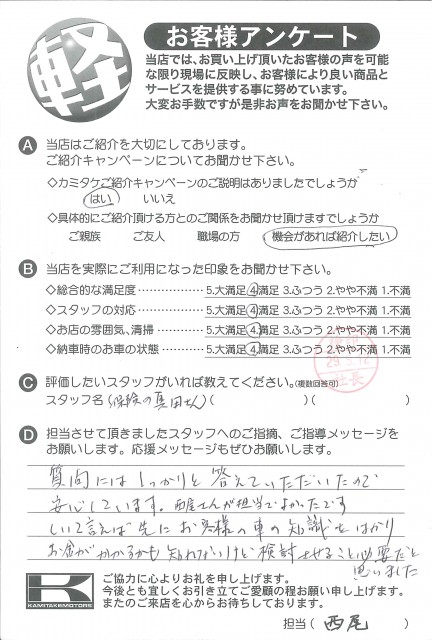 軽
お客様アンケート
当店では、お買い上げ頂いたお客様の声を可能
な限り現場に反映し、お客様により良い商品と
サービスを提供する事に努めています。
大変お手数ですが是非お声をお聞かせ下さい。
A 当店はご紹介を大切にしております。
ご紹介キャンペーンについてお聞かせ下さい。
◇カミタケご紹介キャンペーンのご説明はありましたでしょうか
はい いいえ
◇具体的にご紹介頂ける方とのご関係をお聞かせ頂けますでしょうか
ご親族 ご友人 職場の方 機会があれば紹介したい
B 当店を実際にご利用になった印象をお聞かせ下さい。
◇総合的な満足度 5.大満足 4.満足 3.ふつう 2.やや不満 1.不満
◇スタッフの対応 5.大満足 4.満足 3.ふつう 2.やや不満 1.不満
◇お店の雰囲気、清掃 5.大満足 4.満足 3.ふつう 2.やや不満 1.不満
◇納車時のお車の状態 5.大満足 4.満足 3.ふつう 2.やや不満 1.不満
社長
C 評価したいスタッフがいれば教えてください。(複数回答可)
スタッフ名(保険の真田さん)( )( )
D 担当させて頂きましたスタッフへのご指摘、ご指導メッセージを
お願いします。応援メッセージもぜひお願いします。
質問にはしっかりと答えていただいたので
安心しています。西尾さんが担当でよかったです
しいて言えば先にお客様の車の知識をはかり
お金がかかるかも知れないけど検討させること必要だと
思いました
K
KAMITAKEMOTORS
ご協力に心よりお礼を申し上げます。
今後とも宜しくお引き立てご愛顧の程お願い申し上げます。
またのご来店を心からお待ちしております。
担当(西尾)